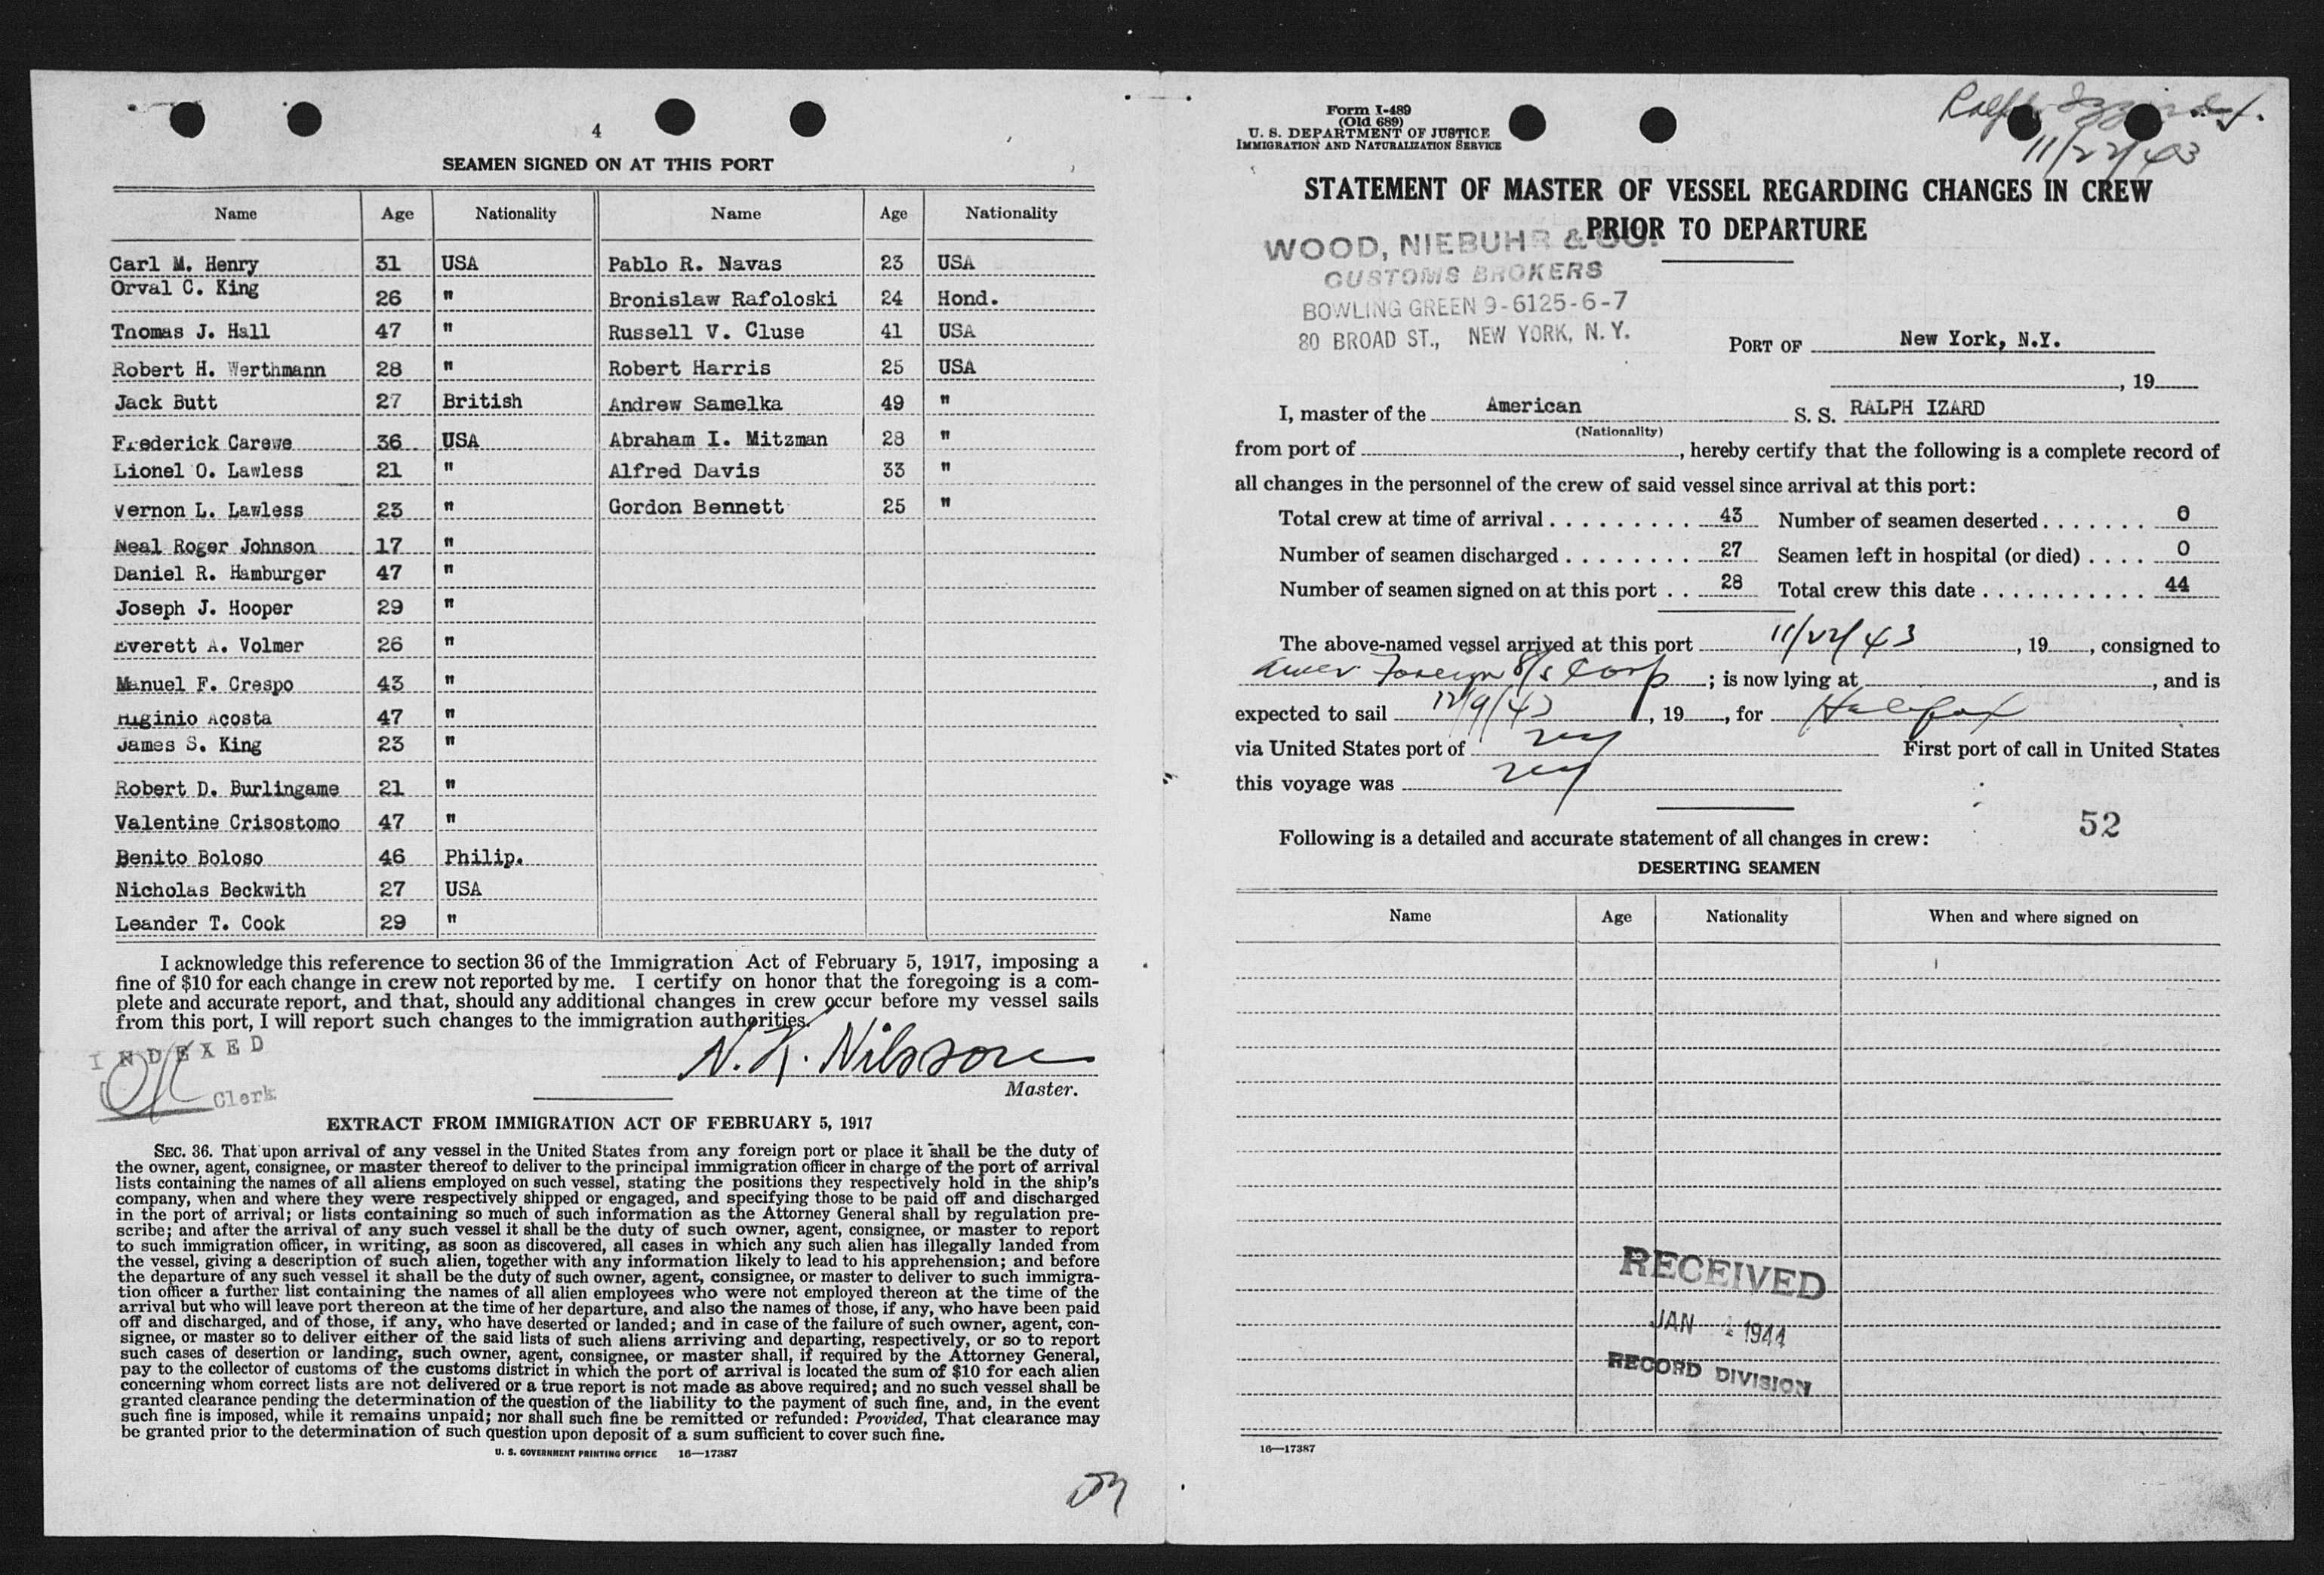 4
SEAMEN SIGNED ON AT THIS PORT
Name Age Nationality Name Age Nationality
Carl M. Henry 31 USA Pablo R. Navas 23 USA
Orval C. King 26 " Bronislaw Rafoloski 24 Hond.
Thomas J. Hall 47 " Russell V. Cluse 41 USA
Robert H. Werthmann 28 " Robert Harris 25 USA
Jack Butt 27 British Andrew Samelka 49 "
Frederick Carewe 36 USA Abraham I. Mitzman 28 "
Lionel O. Lawless 21 " Alfred Davis 33 "
Vernon L. Lawless 23 " Gordon Bennett 25 "
Neal Roger Johnson 17 "
Daniel R. Hamburger 47 "
Joseph J. Hooper 29 "
Everett A. Volmer 26 "
Manuel F. Crespo 43 "
Higinio Acosta 47 "
James S. King 23 "
Robert D. Burlingame 21 "
Valentine Crisostomo 47 "
Benito Boloso 46 Philip.
Nicholas Beckwith 27 USA
Leander T. Cook 29 "
I acknowledge this reference to section 36 of the Immigration Act of February 5, 1917, imposing a
fine of $10 for each change in crew not reported by me. I certify on honor that the foregoing is a com-
plete and accurate report, and that, should any additional changes in crew occur before my vessel sails
from this port, I will report such changes to the immigration authorities.
INDEXED
N. K. Nilsson
Clerk
Master.
EXTRACT FROM IMMIGRATION ACT OF FEBRUARY 5, 1917
SEC. 36. That upon arrival of any vessel in the United States from any foreign port or place it shall be the duty of
the owner, agent, consignee, or master thereof to deliver to the principal immigration officer in charge of the port of arrival
lists containing the names of all aliens employed on such vessel, stating the positions they respectively hold in the ship's
company, when and where they were respectively shipped or engaged, and specifying those to be paid off and discharged
in the port of arrival; or lists containing so much of such information as the Attorney General shall by regulation pre-
scribe; and after the arrival of any such vessel it shall be the duty of such owner, agent, consignee, or master to report
to such immigration officer, in writing, as soon as discovered, all cases in which any such alien has illegally landed from
the vessel, giving a description of such alien, together with any information likely to lead to his apprehension; and before
the departure of any such vessel it shall be the duty of such owner, agent, consignee, or master to deliver to such immigra-
tion officer a further list containing the names of all alien employees who were not employed thereon at the time of the
arrival but who will leave port thereon at the time of her departure, and also the names of those, if any, who have been paid
off and discharged, and of those, if any, who have deserted or landed; and in case of the failure of such owner, agent, con-
signee, or master so to deliver either of the said lists of such aliens arriving and departing, respectively, or so to report
such cases of desertion or landing, such owner, agent, consignee, or master shall, if required by the Attorney General,
pay to the collector of customs of the customs district in which the port of arrival is located the sum of $10 for each alien
concerning whom correct lists are not delivered or a true report is not made as above required; and no such vessel shall be
granted clearance pending the determination of the question of the liability to the payment of such fine, and, in the event
such fine is imposed, while it remains unpaid; nor shall such fine be remitted or refunded: Provided, That clearance may
be granted prior to the determination of such question upon deposit of a sum sufficient to cover such fine.
U. S. GOVERNMENT PRINTING OFFICE 16—17387
Form I-489
(Old 689)
U. S. DEPARTMENT OF JUSTICE
IMMIGRATION AND NATURALIZATION SERVICE
Ralph Izard
11/22/43
STATEMENT OF MASTER OF VESSEL REGARDING CHANGES IN CREW
PRIOR TO DEPARTURE
WOOD, NIEBUHR & CO.
CUSTOMS BROKERS
BOWLING GREEN 9-6125-6-7
80 BROAD ST., NEW YORK, N. Y.
PORT OF New York, N.Y.
, 19
I, master of the American S. S. RALPH IZARD
(Nationality)
from port of , hereby certify that the following is a complete record of
all changes in the personnel of the crew of said vessel since arrival at this port:
Total crew at time of arrival . . . . . . . . . . 43 Number of seamen deserted . . . . . . . 0
Number of seamen discharged . . . . . . . . . 27 Seamen left in hospital (or died) . . . . 0
Number of seamen signed on at this port . . 28 Total crew this date . . . . . . . . . . . 44
The above-named vessel arrived at this port 11/22/43 , 19 , consigned to
Amer Foreign S/S Corp ; is now lying at , and is
expected to sail 12/9/43 , 19 , for Halifax
via United States port of ny First port of call in United States
this voyage was ny
52
Following is a detailed and accurate statement of all changes in crew:
DESERTING SEAMEN
Name Age Nationality When and where signed on
RECEIVED
JAN 1944
RECORD DIVISION
16—17387